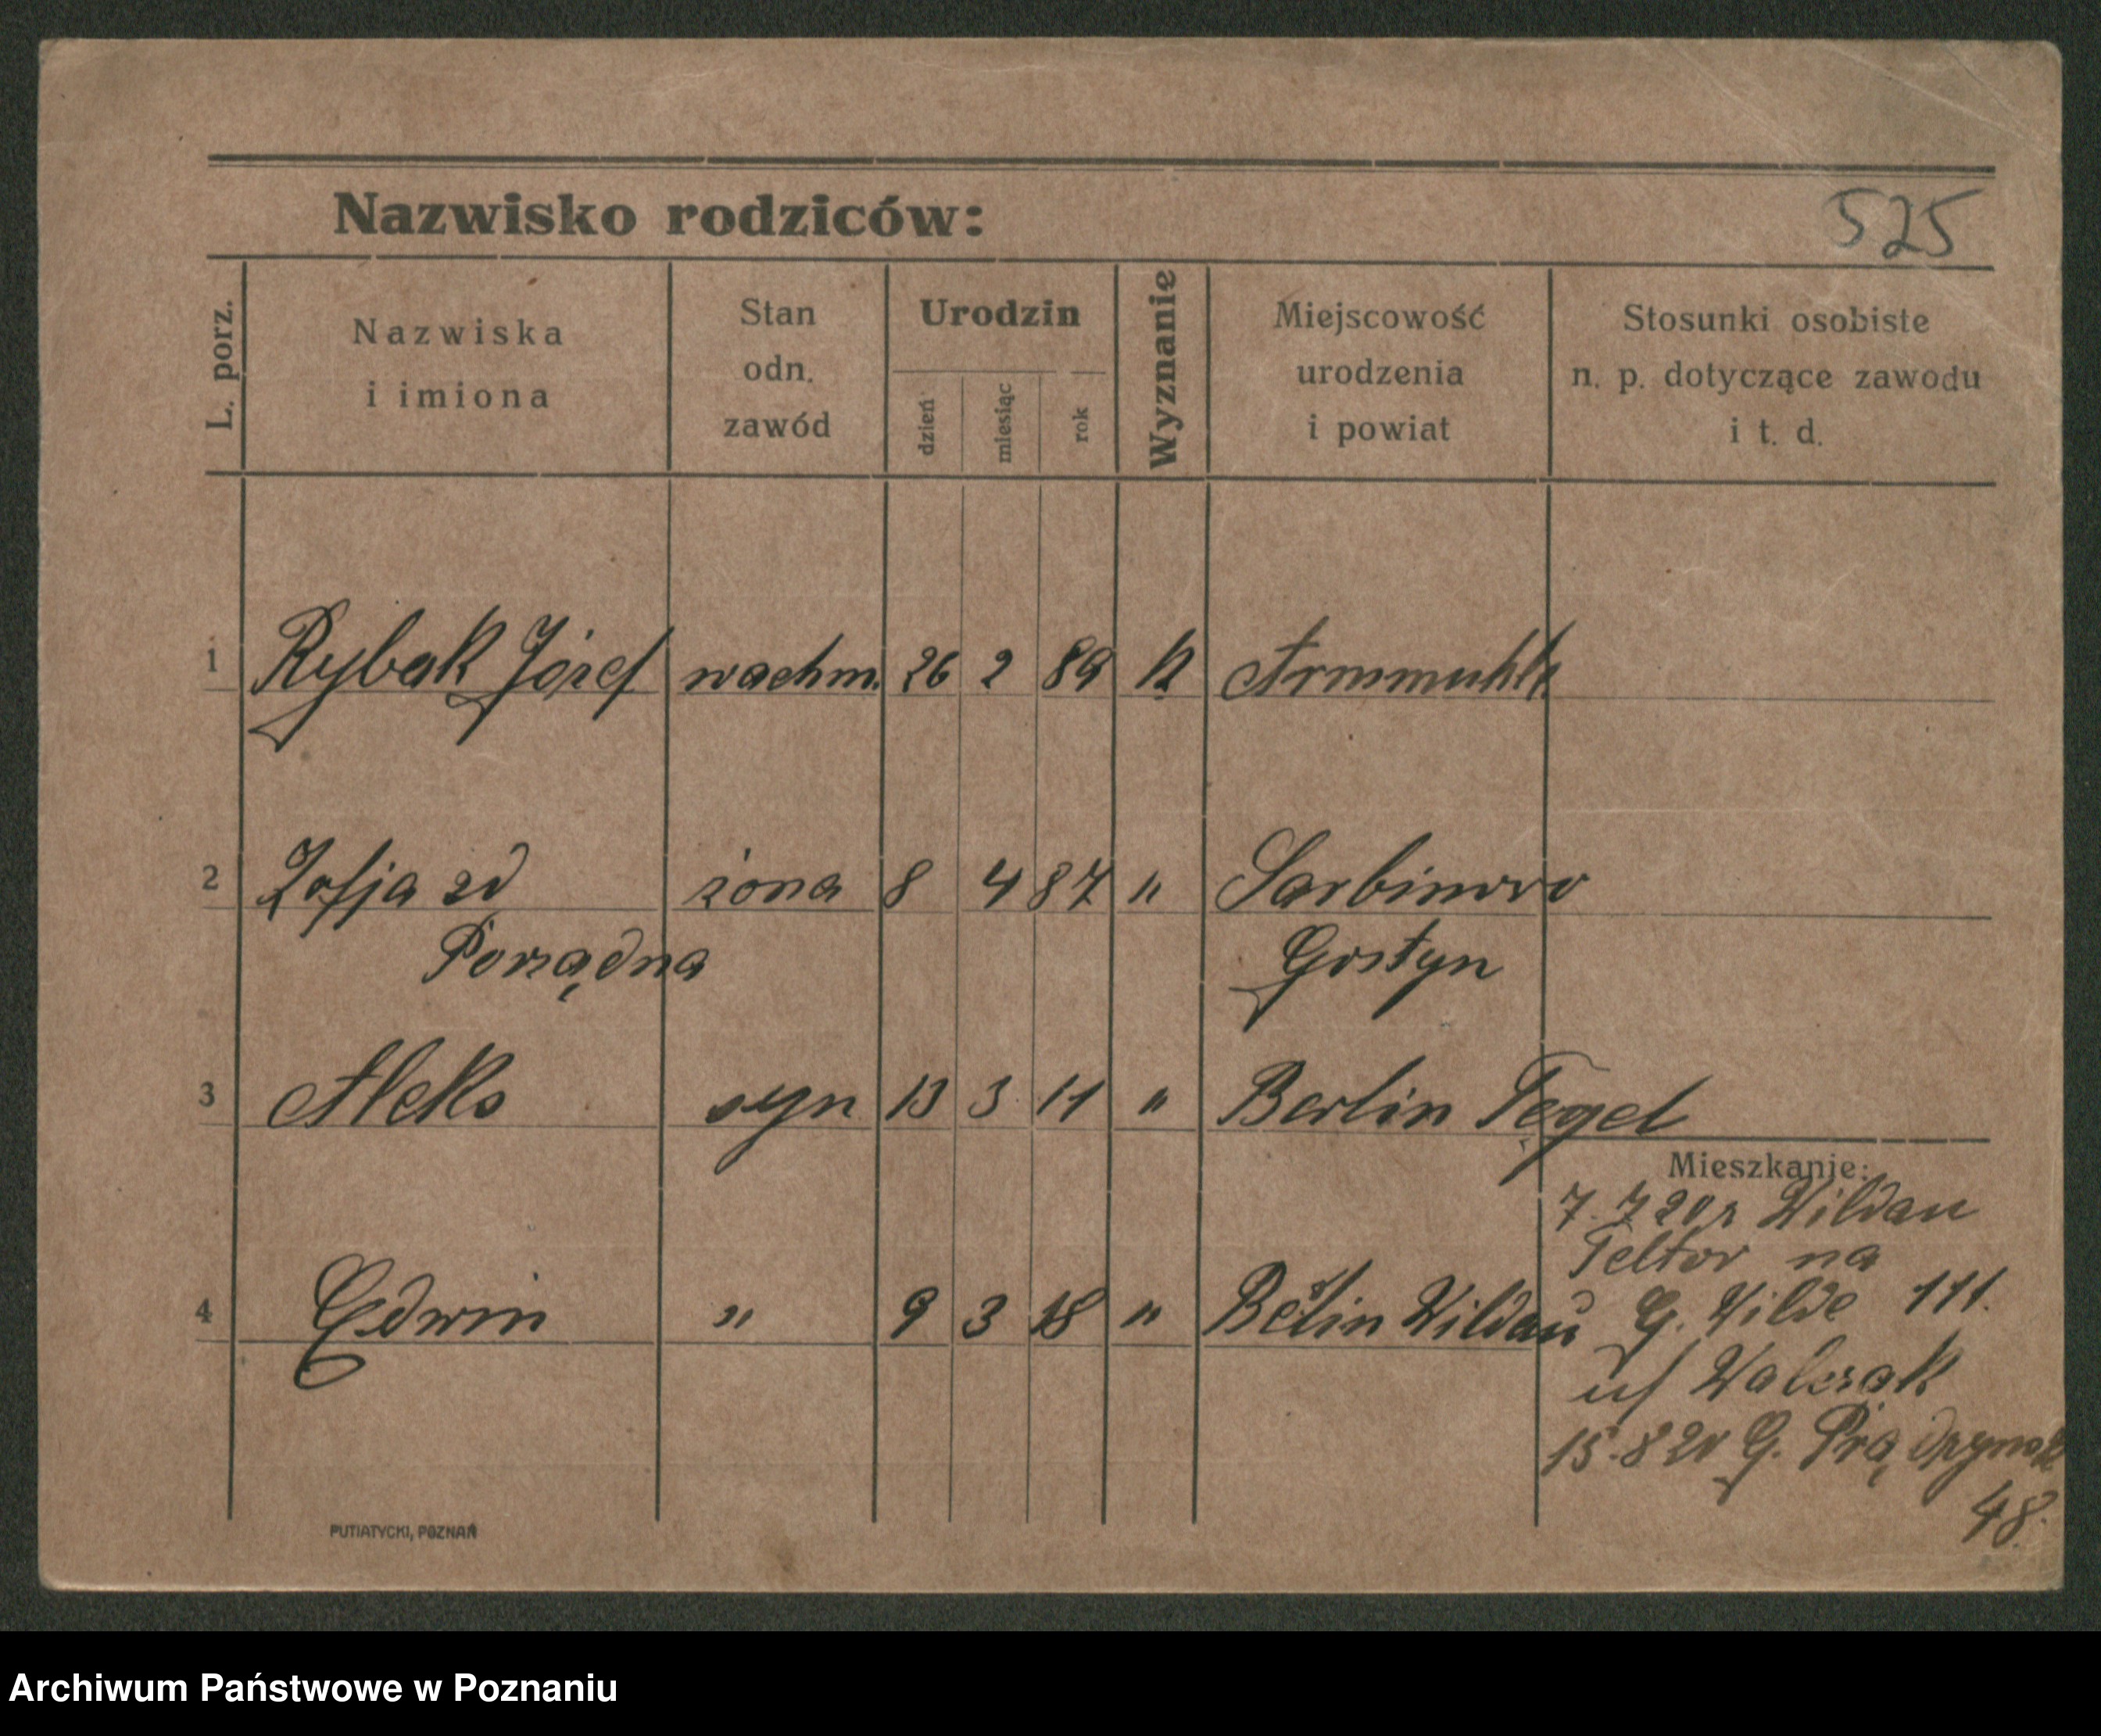 Nazwisko rodziców:
525
L. porz.
Nazwiska
i imiona
Stan
odn.
zawód
Urodzin
dzień
miesiąc
rok
Wyznanie
Miejscowość
urodzenia
i powiat
Stosunki osobiste
n. p. dotyczące zawodu
i t. d.
1 Rybak Józef wachm. 26 2 89 k
2 Zofja zd żona 8 4 87 " Sarbinowo
Porządna Gostyn
3 Aleks syn 13 3 11 " Berlin Tegel
Mieszkanie:
7. 7 20 r Wildau
Teltow na
4 Edwin " 9 3 18 " Wildau G. Wilde 111.
u/ Walczak
15.8 20 G. Prądzyńsk
48.
PUTIATYCKI, POZNAŃ
Archiwum Państwowe w Poznaniu